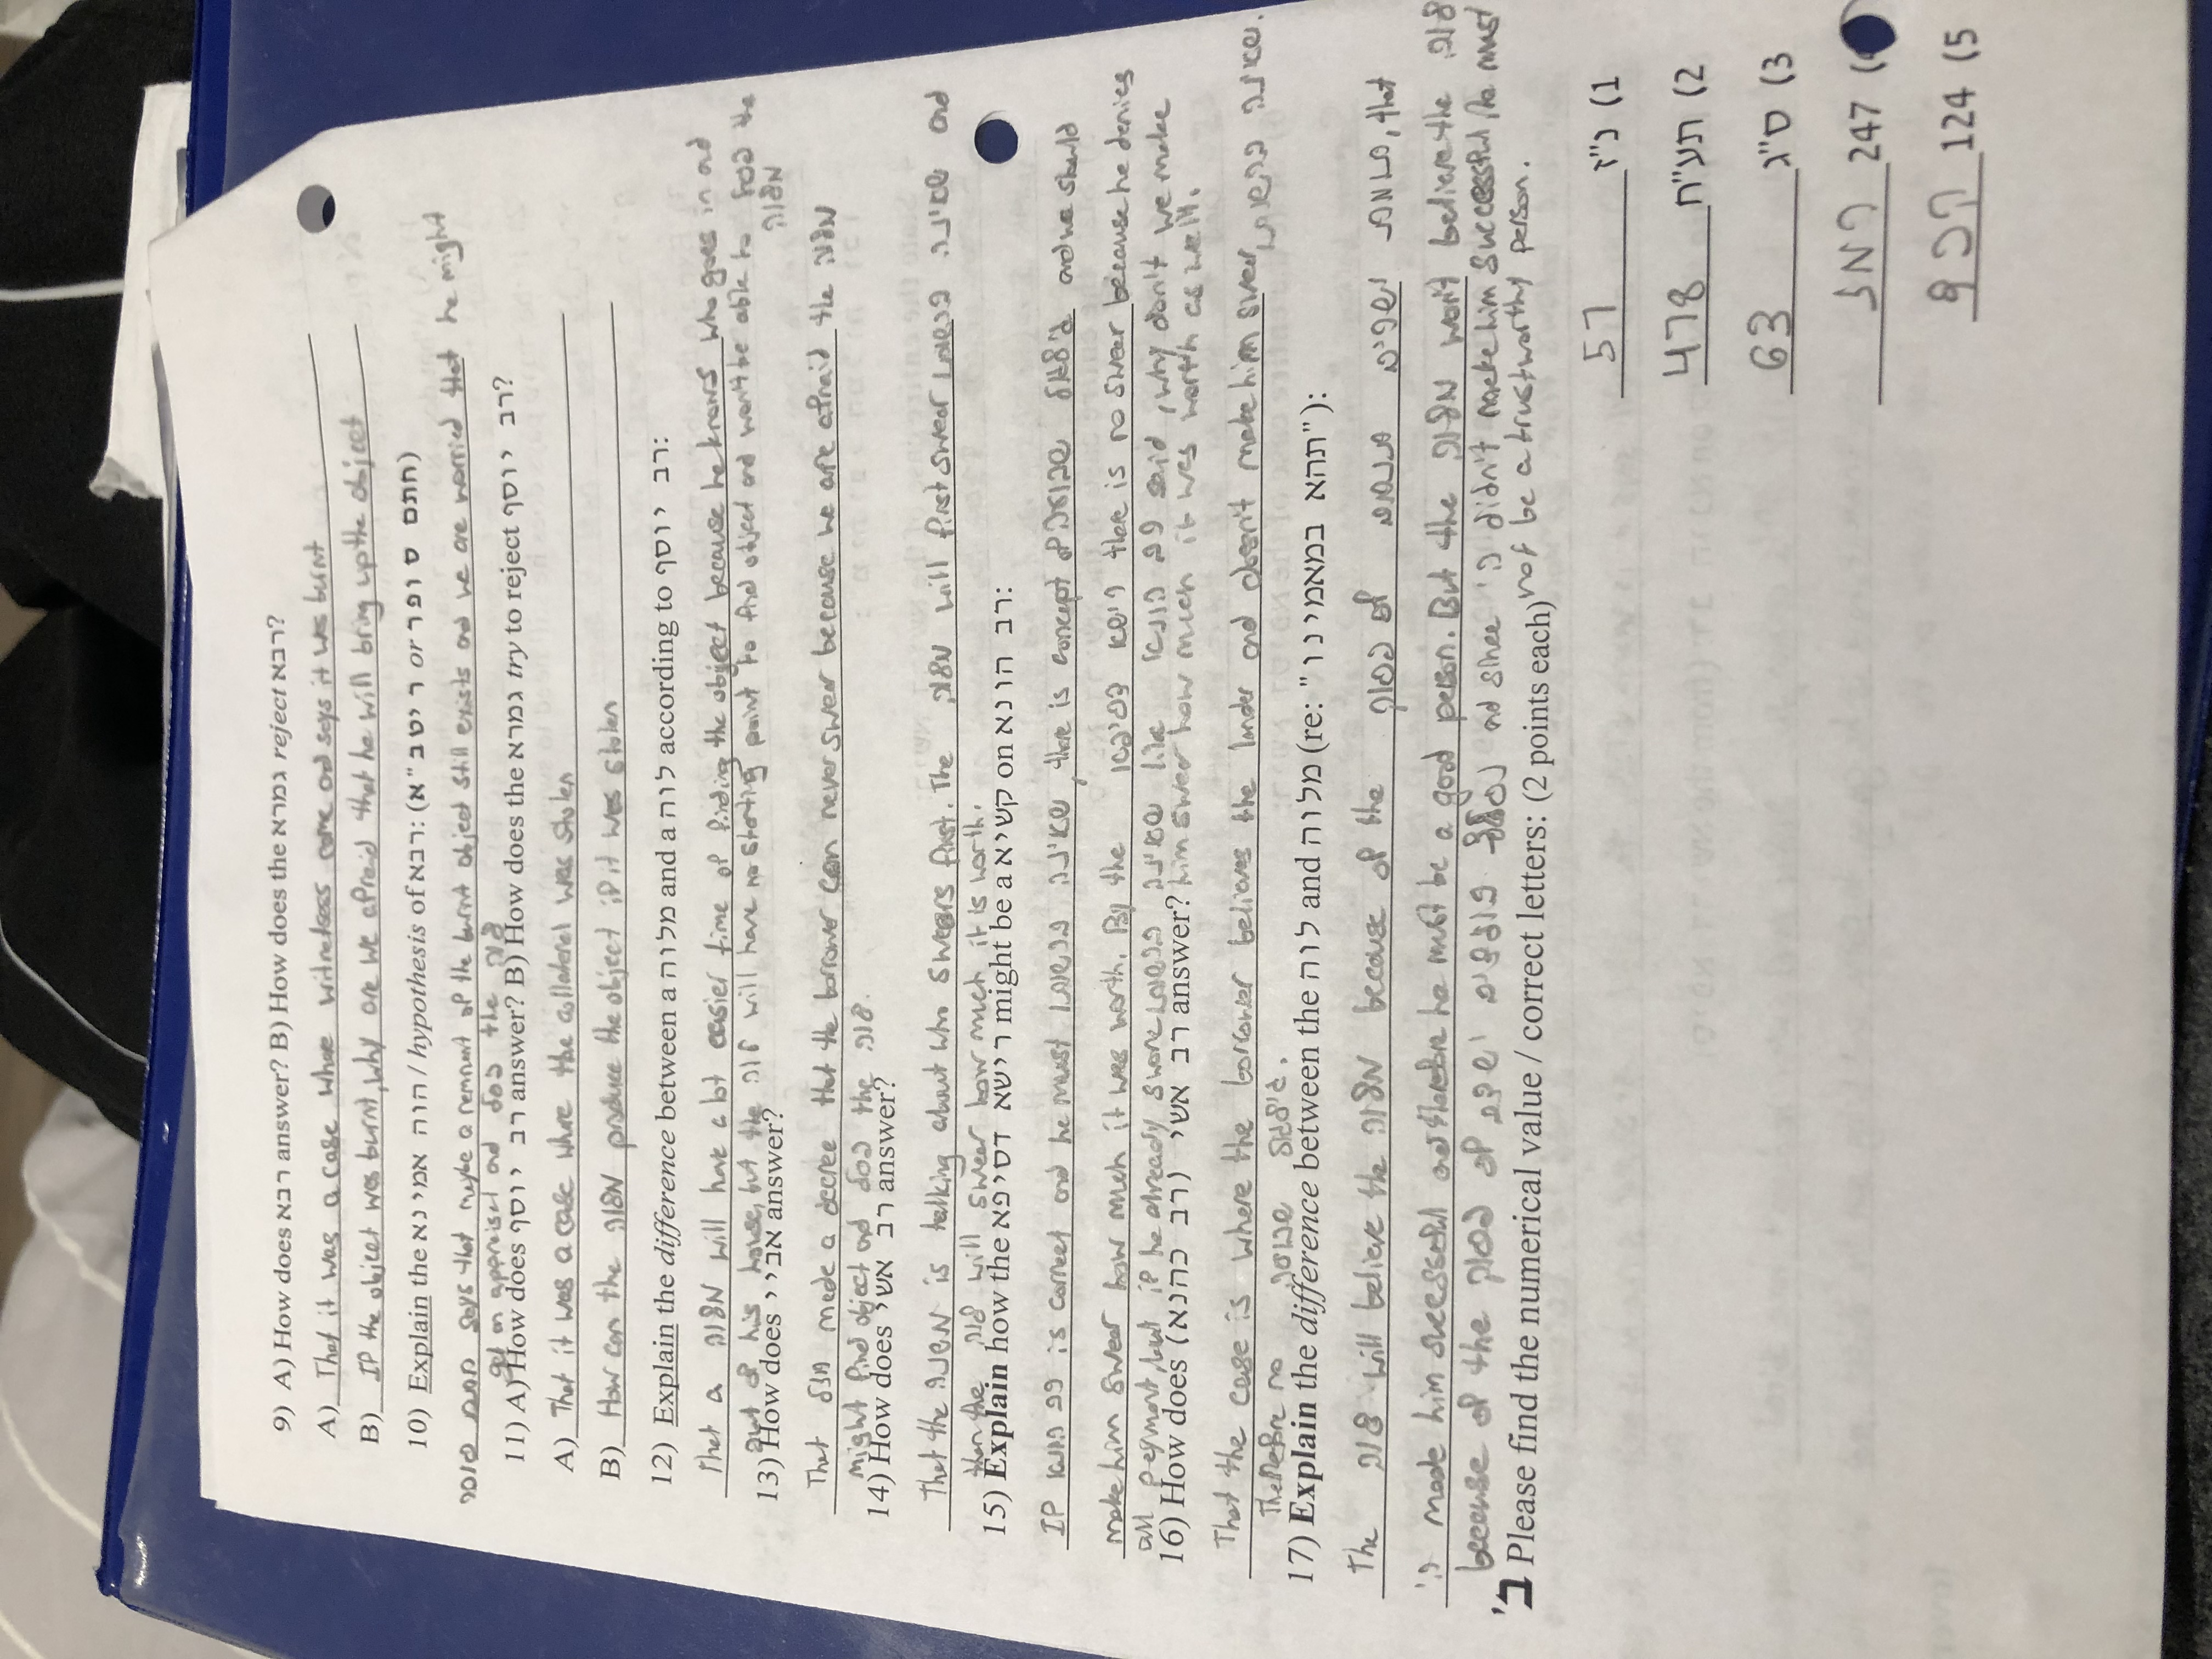 9) A) How does רבא answer? B) How does the גמרא reject רבא?
A) That it was a case where witnetsess come and says it was burnt
B) If the object was burnt, why are we afraid that he will bring up the object
10) Explain the הוה אמינא / hypothesis of רבא: (חתם סופר or ריטב"א)
חתם סופר says that maybe a remnant of the burnt object still exists and we are worried that he might
get an appraisel and פסל the לוה
11) A) How does רב יוסף answer? B) How does the גמרא try to reject רב יוסף?
A) That it was a case where the collateral was stolen
B) How can the מלוה produce the object if it was stolen
12) Explain the difference between a מלוה and a לוה according to רב יוסף:
That a מלוה will have a lot easier time of finding the object because he knows who goes in and
out of his house, but the לוה will have no starting point to find object and won't be able to פסל the
מלוה
13) How does אביי answer?
That חז"ל made a decree that the borrower can never swear because we are afraid the מלוה
might find object and פסל the לוה.
14) How does רב אשי answer?
That the משנה is talking about who swears first. The מלוה will first swear שאינה ברשותו and
then the לוה will swear how much it is worth.
15) Explain how the רישא דסיפא might be a קשיא on רב הונא:
If רב הונא is correct and he must שאינה ברשותו, there is concept of גילגול שבועה and we should
make him swear how much it was worth. By the רישא דסיפא there is no swear because he denies
all payment, but if he already swore שאינה ברשותו like רב הונא said, why don't we make
16) How does רב אשי (רב כהנא) answer? him swear how much it was worth as well.
That the case is where the borrower believes the lender and doesn't make him swear שאינה ברשותו.
Therefore no גילגול שבועה.
17) Explain the difference between the לוה and מלוה (re: "תהא במאמינו"):
The לוה will believe the מלוה because of the פסוק of תומת ישרים תנחם, that
ה' made him successful and therefore he must be a good person. But the מלוה won't believe the לוה
because of the פסוק of סלף בוגדים ישדם and since ה' didn't make him successful, he must
ב' Please find the numerical value / correct letters: (2 points each) not be a trustworthy person.
1) נ"ז 57
2) תע"ח 478
3) ס"ג 63
247 רמז
5) 124 קכד